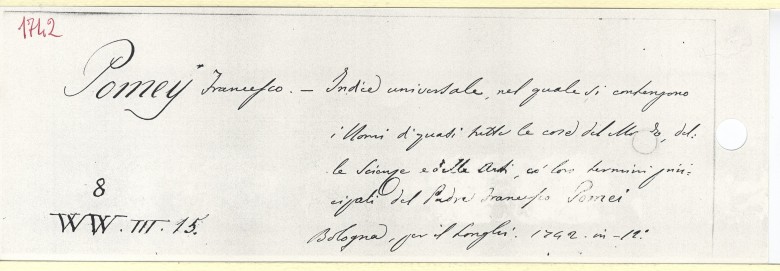 1742
Pomeÿ Francesco. — Indice universale, nel quale si contengono
i Nomi di quasi tutte le cose del Mo do, del:
le Scienze e delle Arti, co' loro termini prin-
cipali del Padre Francesco Pomei
Bologna, per il Longhi. 1742. in-12.º
8
WW. III. 15.